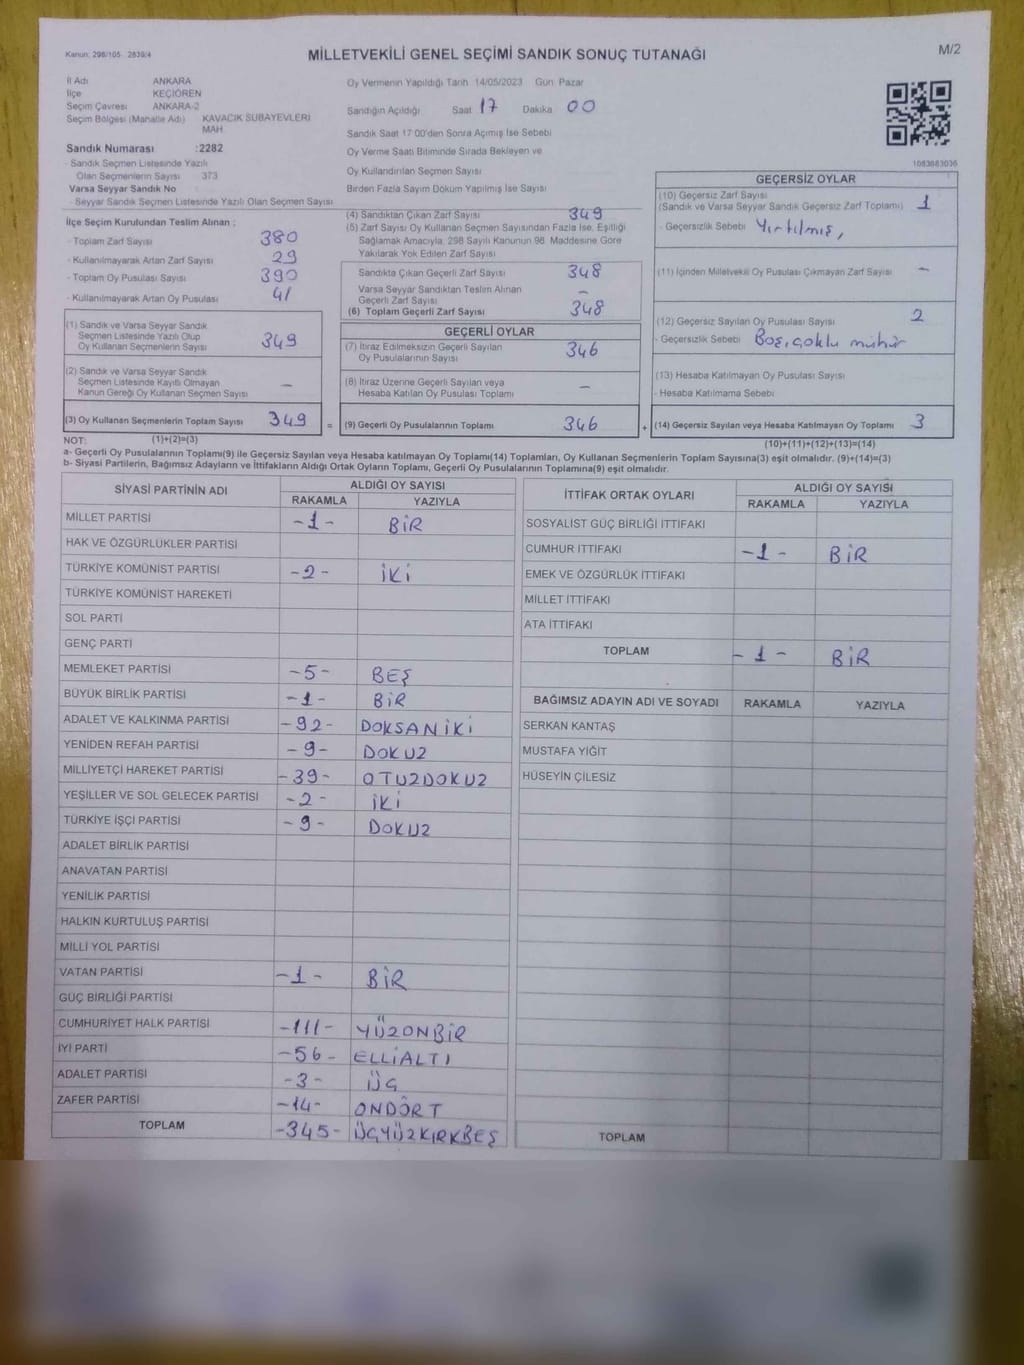 Kanun: 298/105 2839/4
MİLLETVEKİLİ GENEL SEÇİMİ SANDIK SONUÇ TUTANAĞI
M/2
İl Adı ANKARA
İlçe KEÇİÖREN
Seçim Çevresi ANKARA-2
Seçim Bölgesi (Mahalle Adı) KAVACIK SUBAYEVLERİ MAH.
Sandık Numarası :2282
- Sandık Seçmen Listesinde Yazılı
Olan Seçmenlerin Sayısı 373
Varsa Seyyar Sandık No
- Seyyar Sandık Seçmen Listesinde Yazılı Olan Seçmen Sayısı
Oy Vermenin Yapıldığı Tarih 14/05/2023 Gün Pazar
Sandığın Açıldığı Saat 17 Dakika 00
Sandık Saat 17:00'den Sonra Açılmış İse Sebebi
Oy Verme Saati Bitiminde Sırada Bekleyen ve
Oy Kullandırılan Seçmen Sayısı
Birden Fazla Sayım Döküm Yapılmış İse Sayısı
1083683036
İlçe Seçim Kurulundan Teslim Alınan ;
- Toplam Zarf Sayısı 380
- Kullanılmayarak Artan Zarf Sayısı 29
- Toplam Oy Pusulası Sayısı 390
- Kullanılmayarak Artan Oy Pusulası 41
(1) Sandık ve Varsa Seyyar Sandık
Seçmen Listesinde Yazılı Olup
Oy Kullanan Seçmenlerin Sayısı 349
(2) Sandık ve Varsa Seyyar Sandık
Seçmen Listesinde Kayıtlı Olmayan
Kanun Gereği Oy Kullanan Seçmen Sayısı -
(3) Oy Kullanan Seçmenlerin Toplam Sayısı 349 =
(4) Sandıktan Çıkan Zarf Sayısı 349
(5) Zarf Sayısı Oy Kullanan Seçmen Sayısından Fazla İse, Eşitliği
Sağlamak Amacıyla, 298 Sayılı Kanunun 98. Maddesine Göre
Yakılarak Yok Edilen Zarf Sayısı
Sandıkta Çıkan Geçerli Zarf Sayısı 348
Varsa Seyyar Sandıktan Teslim Alınan
Geçerli Zarf Sayısı -
(6) Toplam Geçerli Zarf Sayısı 348
GEÇERLİ OYLAR
(7) İtiraz Edilmeksizin Geçerli Sayılan
Oy Pusulalarının Sayısı 346
(8) İtiraz Üzerine Geçerli Sayılan veya
Hesaba Katılan Oy Pusulası Toplamı -
(9) Geçerli Oy Pusulalarının Toplamı 346 +
GEÇERSİZ OYLAR
(10) Geçersiz Zarf Sayısı
(Sandık ve Varsa Seyyar Sandık Geçersiz Zarf Toplamı) 1
- Geçersizlik Sebebi Yırtılmış,
(11) İçinden Milletvekili Oy Pusulası Çıkmayan Zarf Sayısı -
(12) Geçersiz Sayılan Oy Pusulası Sayısı 2
- Geçersizlik Sebebi Boş, çoklu mühür
(13) Hesaba Katılmayan Oy Pusulası Sayısı
- Hesaba Katılmama Sebebi
(14) Geçersiz Sayılan veya Hesaba Katılmayan Oy Toplamı 3
NOT: (1)+(2)=(3)
(10)+(11)+(12)+(13)=(14)
a- Geçerli Oy Pusulalarının Toplamı(9) ile Geçersiz Sayılan veya Hesaba katılmayan Oy Toplamı(14) Toplamları, Oy Kullanan Seçmenlerin Toplam Sayısına(3) eşit olmalıdır. (9)+(14)=(3)
b- Siyasi Partilerin, Bağımsız Adayların ve İttifakların Aldığı Ortak Oyların Toplamı, Geçerli Oy Pusulalarının Toplamına(9) eşit olmalıdır.
SİYASİ PARTİNİN ADI ALDIĞI OY SAYISI
RAKAMLA YAZIYLA
MİLLET PARTİSİ -1- BİR
HAK VE ÖZGÜRLÜKLER PARTİSİ
TÜRKİYE KOMÜNİST PARTİSİ -2- İKİ
TÜRKİYE KOMÜNİST HAREKETİ
SOL PARTİ
GENÇ PARTİ
MEMLEKET PARTİSİ -5- BEŞ
BÜYÜK BİRLİK PARTİSİ -1- BİR
ADALET VE KALKINMA PARTİSİ -92- DOKSANİKİ
YENİDEN REFAH PARTİSİ -9- DOKUZ
MİLLİYETÇİ HAREKET PARTİSİ -39- OTUZDOKUZ
YEŞİLLER VE SOL GELECEK PARTİSİ -2- İKİ
TÜRKİYE İŞÇİ PARTİSİ -9- DOKUZ
ADALET BİRLİK PARTİSİ
ANAVATAN PARTİSİ
YENİLİK PARTİSİ
HALKIN KURTULUŞ PARTİSİ
MİLLİ YOL PARTİSİ
VATAN PARTİSİ -1- BİR
GÜÇ BİRLİĞİ PARTİSİ
CUMHURİYET HALK PARTİSİ -111- YÜZONBİR
İYİ PARTİ -56- ELLİALTI
ADALET PARTİSİ -3- ÜÇ
ZAFER PARTİSİ -14- ONDÖRT
TOPLAM -345- ÜÇYÜZKIRKBEŞ
İTTİFAK ORTAK OYLARI ALDIĞI OY SAYISI
RAKAMLA YAZIYLA
SOSYALİST GÜÇ BİRLİĞİ İTTİFAKI
CUMHUR İTTİFAKI -1- BİR
EMEK VE ÖZGÜRLÜK İTTİFAKI
MİLLET İTTİFAKI
ATA İTTİFAKI
TOPLAM -1- BİR
BAĞIMSIZ ADAYIN ADI VE SOYADI RAKAMLA YAZIYLA
SERKAN KANTAŞ
MUSTAFA YİĞİT
HÜSEYİN ÇİLESİZ
TOPLAM